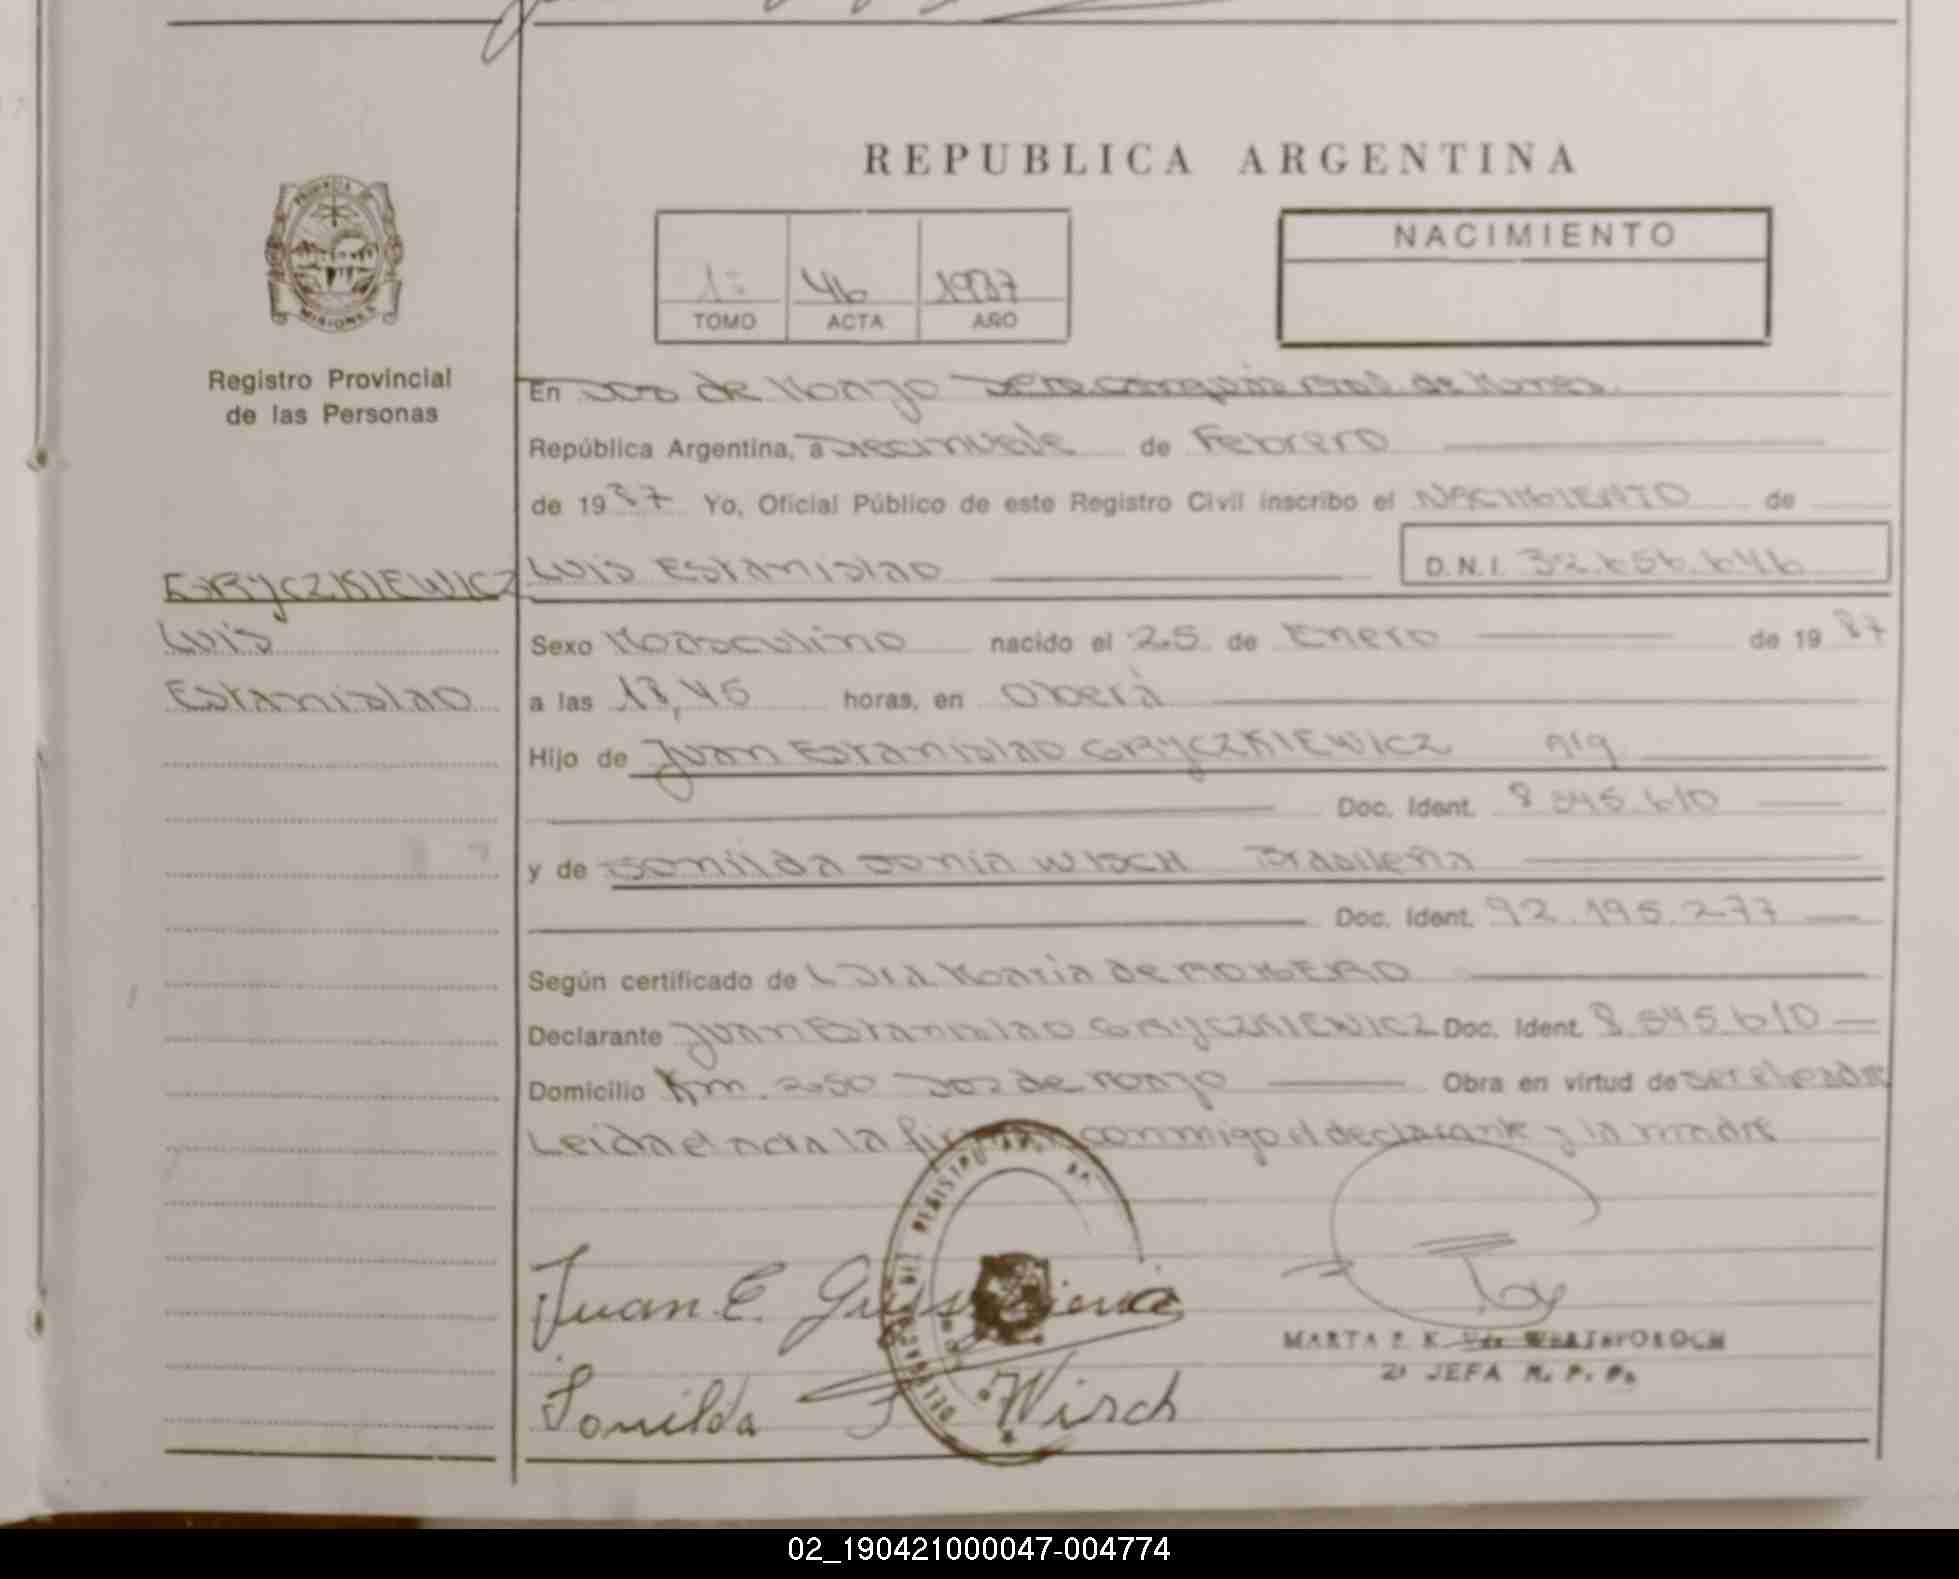 REPUBLICA ARGENTINA
PROVINCIA
MISIONES
Registro Provincial
de las Personas
1= 46 1987
TOMO ACTA AÑO
NACIMIENTO
En Dos de Mayo
República Argentina, a Diecinueve de Febrero
de 1987 Yo, Oficial Público de este Registro Civil inscribo el NACIMIENTO de
GRYCZKIEWICZ
Luis
Estanislao
Luis Estanislao D.N.I. 32.656.646
Sexo Masculino nacido el 25 de Enero de 1987
a las 18,45 horas, en Oberá
Hijo de Juan Estanislao GRYCZKIEWICZ arg
Doc. Ident. 8.545.610
y de Sonilda WISCH Brasileña
Doc. Ident. 92.195.277
Según certificado de Maria de ROMERO
Declarante Juan Estanislao GRYCZKIEWICZ Doc. Ident. 8.545.610
Domicilio Km. 250 Dos de Mayo Obra en virtud de
Leida el acta la firman conmigo el declarante y la madre
Juan E.
Sonilda Wirch
MARTA K. Vda
JEFA R. P. P.
02_190421000047-004774